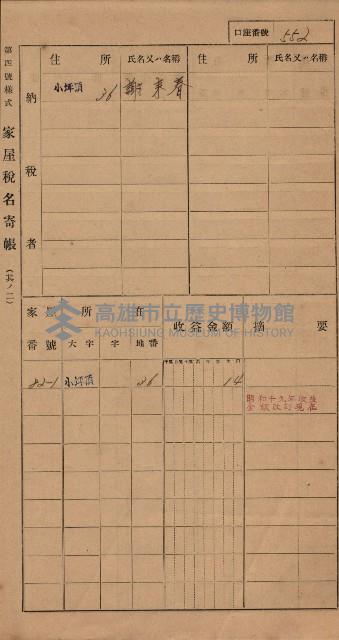 口座番號 552
第四號樣式 家屋稅名寄帳 (其ノ二)
納稅者
住所 氏名又ハ名稱 住所 氏名又ハ名稱
小坪頂 36 謝東春
家屋所在 收益金額 摘要
番號 大字 字 地番
82-1 小坪頂 36 14
昭和十九年收益
金額改訂現在
高雄市立歷史博物館
KAOHSIUNG MUSEUM OF HISTORY